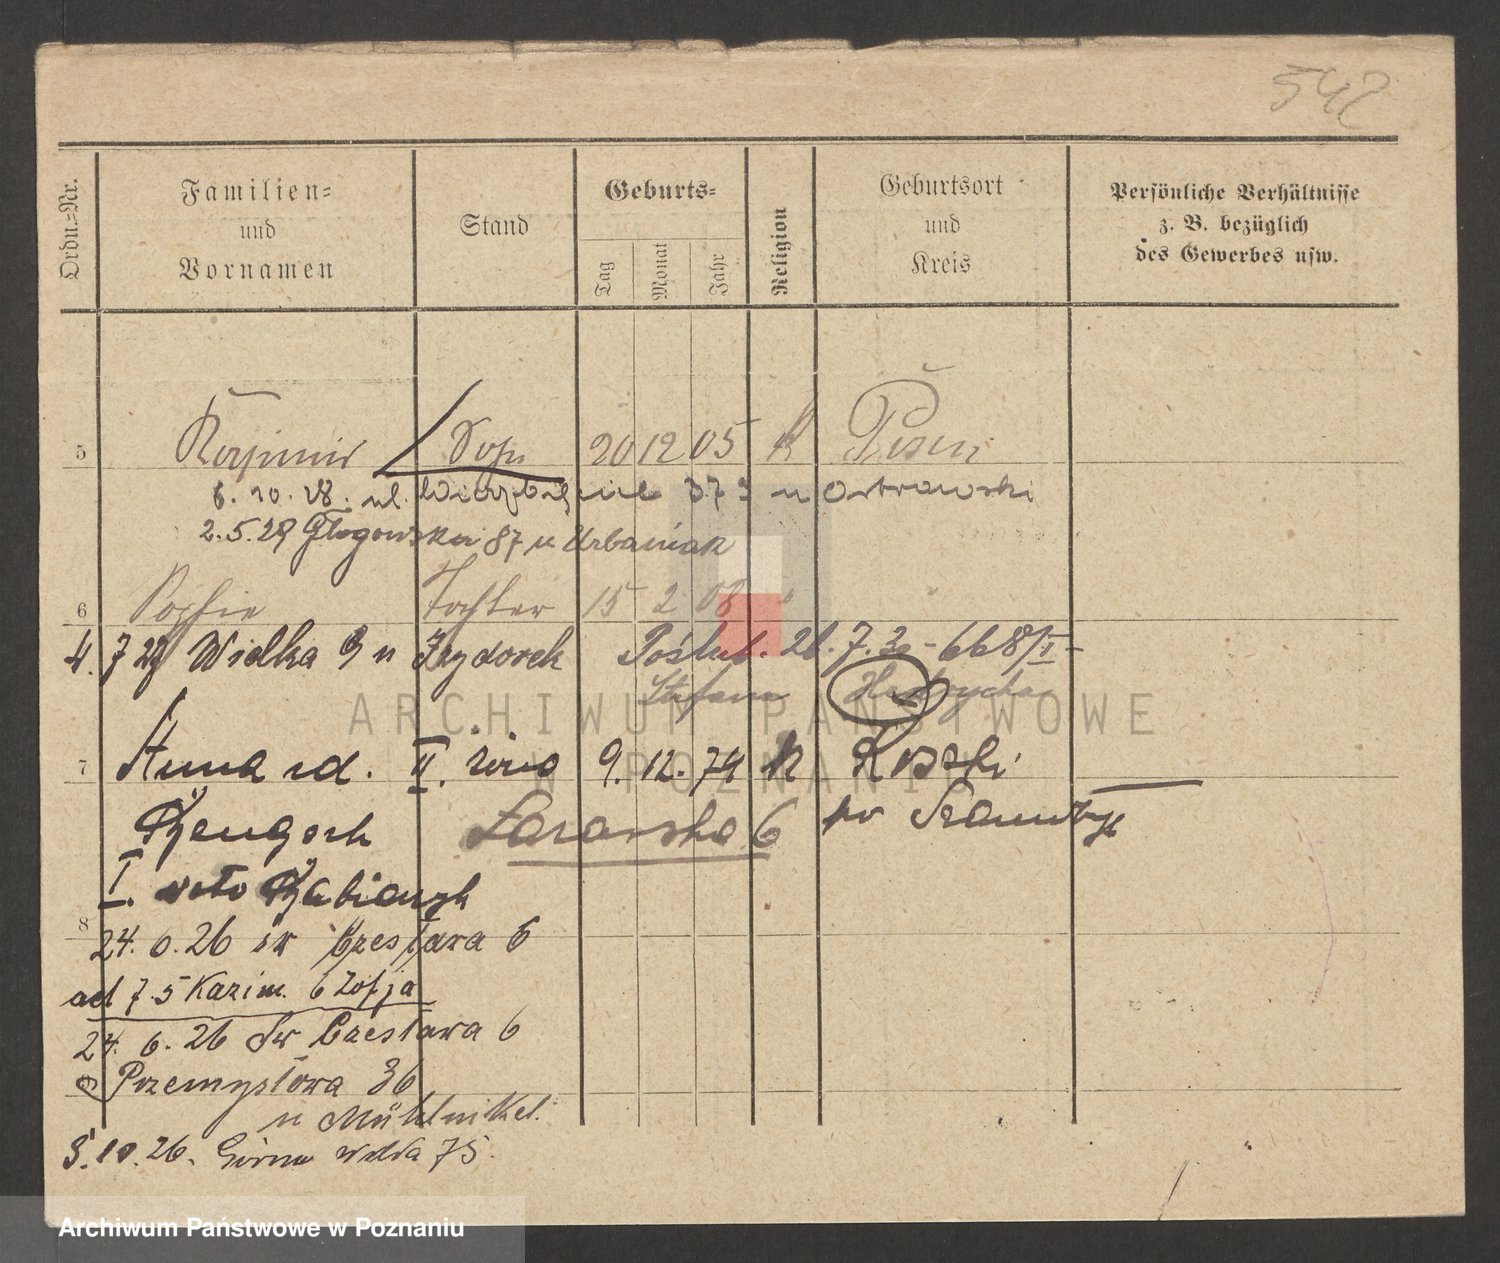 542
Ordn.=Nr.
Familien=
und
Vornamen
Stand
Geburts=
Tag
Monat
Jahr
Religion
Geburtsort
und
Kreis
Persönliche Verhältnisse
z. B. bezüglich
des Gewerbes usw.
5 Kasimir Sohn 20 12 05 K Posen
6. 10. 28. ul. 37 u Ostrowski
2.5.29 Głogowska 87 u Urbaniak
6 Sophie Tochter 15 2 08 " "
4. 7 29 Wielka 9 u Izydorek Poślub. 7. 668/I
Stefana
7 Anna ud. II. żona 9. 12. 74 K
6 po
I. voto
8
24. 6. 26 św Czesława 6
ad 7. 5 Kazim. 6 Zofja
24. 6. 26 Św Czesława 6
Przemysłowa 36
u Mühlnikel.
5. 10. 26. Górna wilda 75.
ARCHIWUM PAŃSTWOWE
W POZNANIU
Archiwum Państwowe w Poznaniu